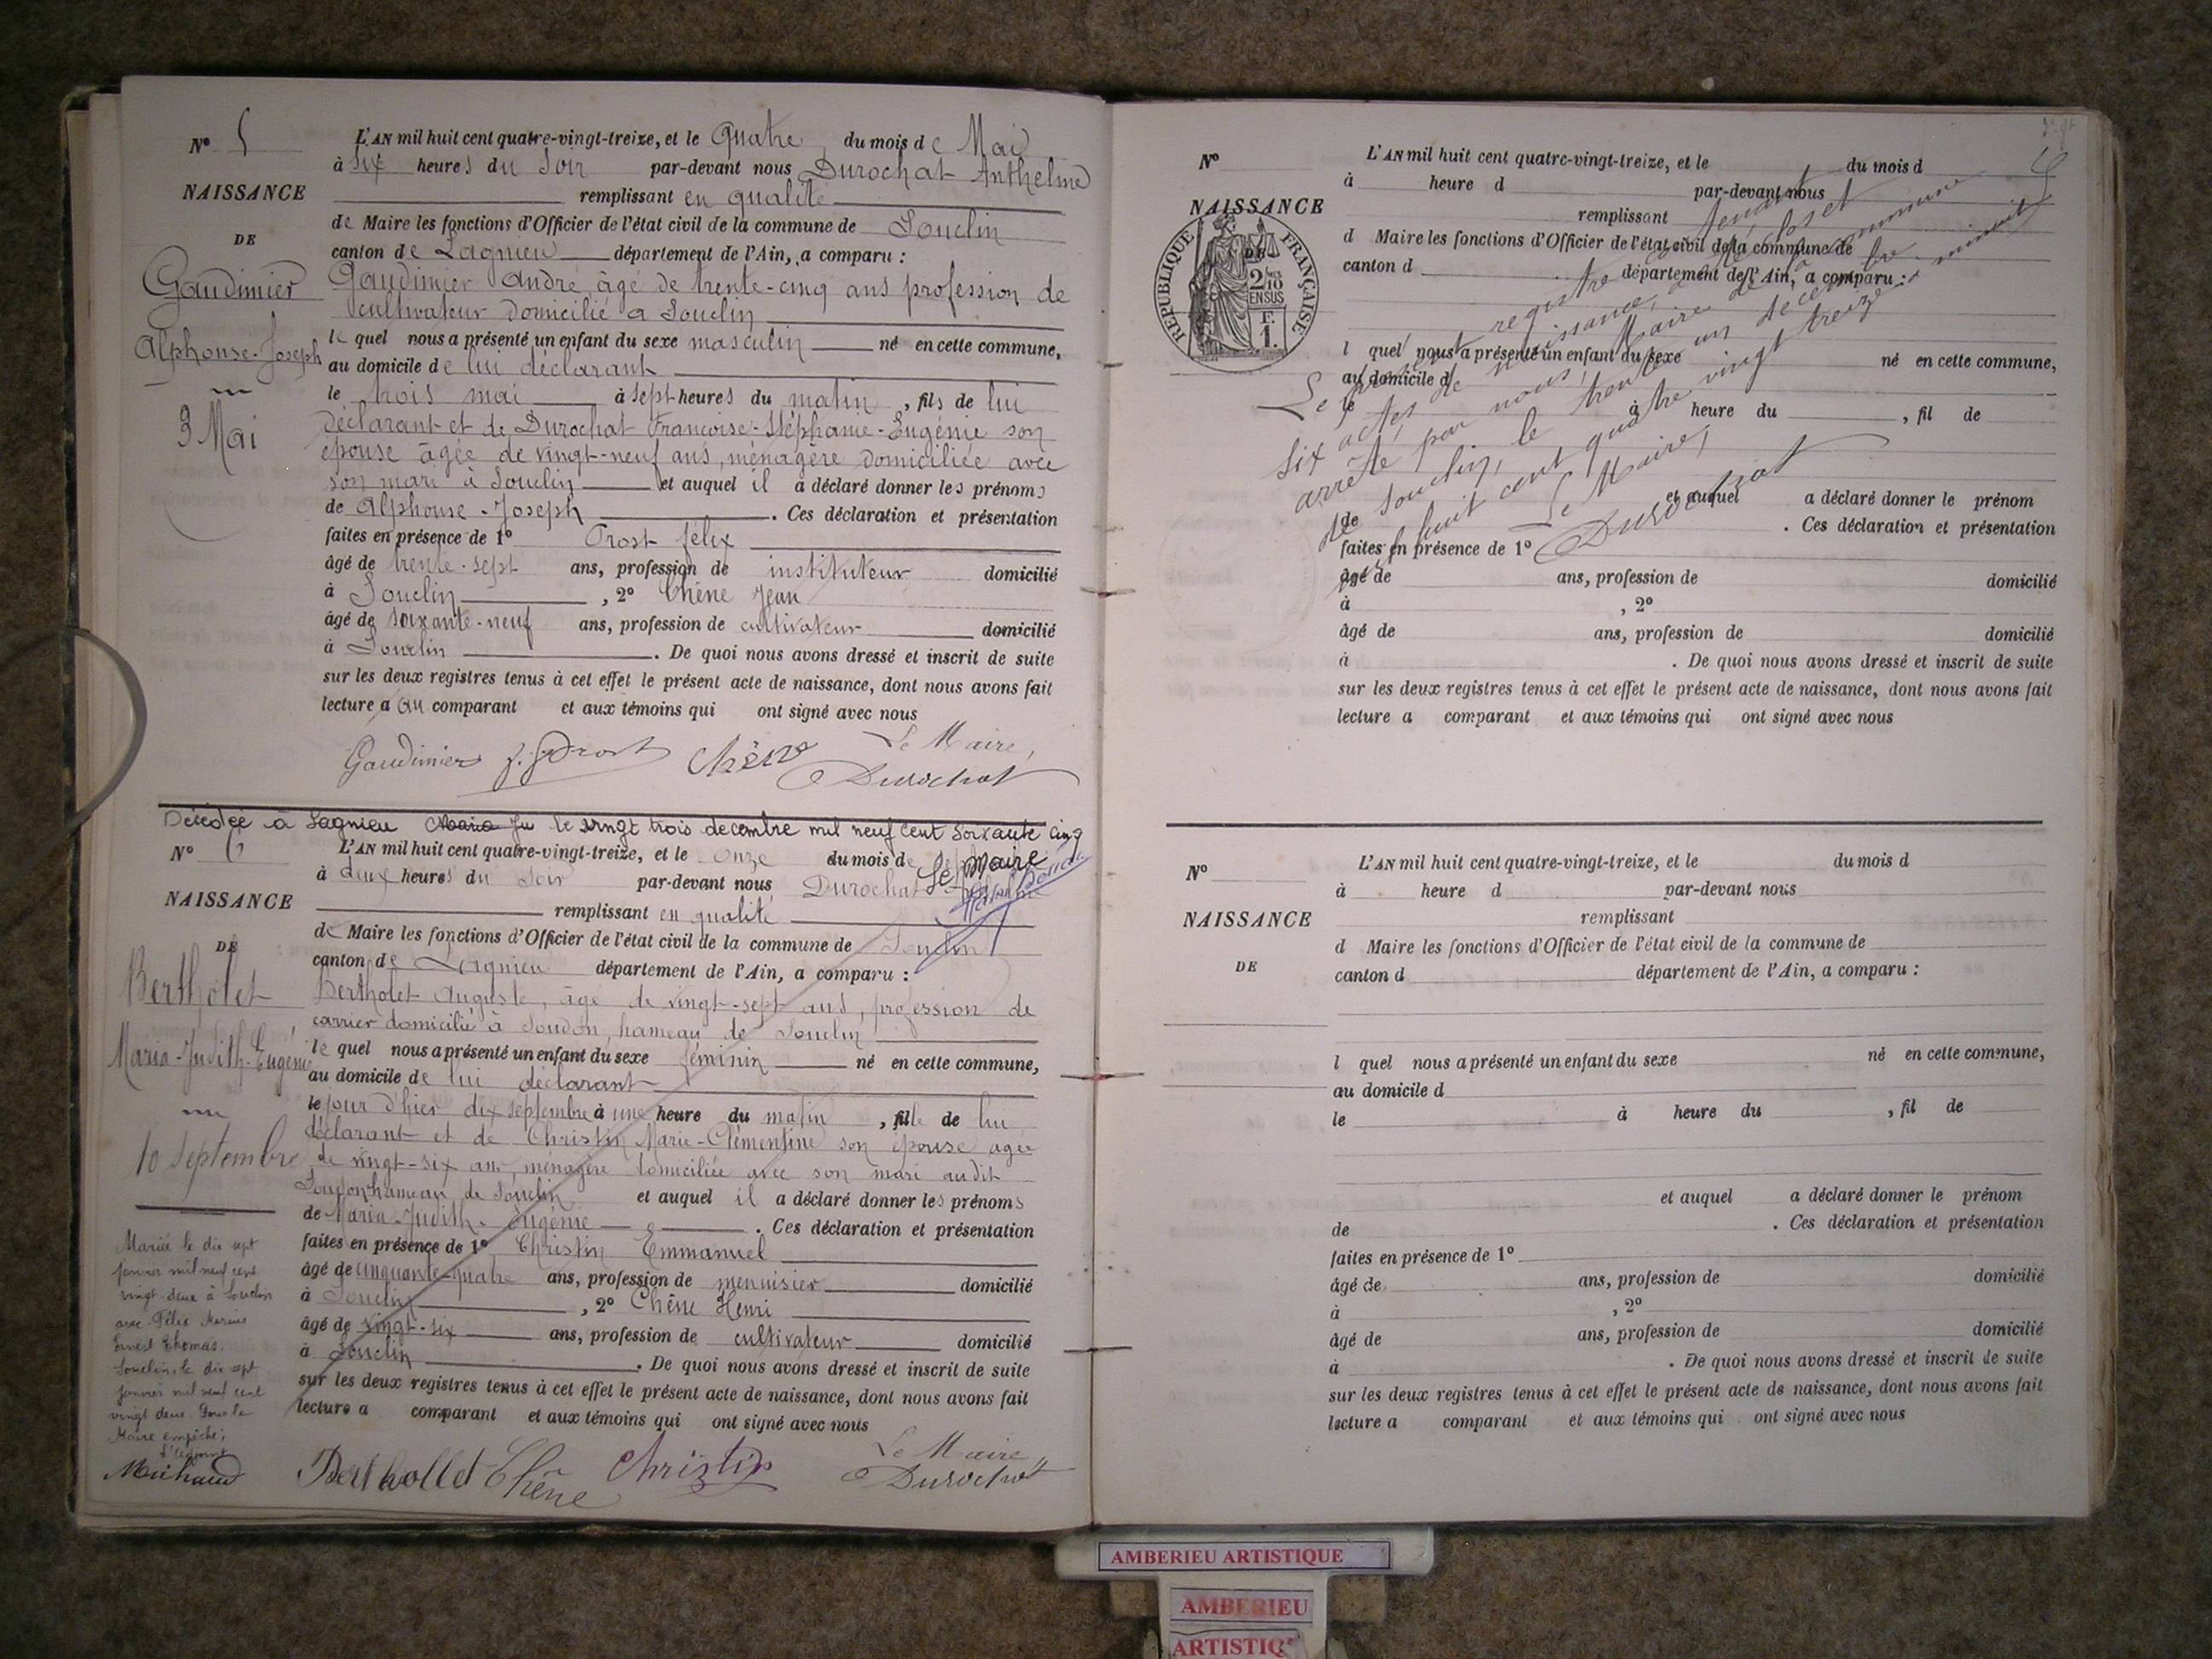 N° 5
NAISSANCE
DE
Gaudimier
Alphonse-Joseph
3 Mai
L'AN mil huit cent quatre-vingt-treize, et le Quatre du mois de Mai
à six heures du Soir par-devant nous Durochat Anthelme
remplissant en qualité
de Maire les fonctions d'Officier de l'état civil de la commune de Souclin
canton de Lagnieu département de l'Ain, a comparu :
Gaudimier André âgé de trente-cinq ans profession de
cultivateur domicilié à Souclin
le quel nous a présenté un enfant du sexe masculin né en cette commune,
au domicile de lui déclarant
le trois mai à sept heures du matin , fils de lui
déclarant et de Durochat Françoise-Stéphanie-Eugénie son
épouse âgée de vingt-neuf ans, ménagère domiciliée avec
son mari à Souclin et auquel il a déclaré donner les prénoms
de Alphonse-Joseph . Ces déclaration et présentation
faites en présence de 1° Prost félix
âgé de trente-sept ans, profession de instituteur domicilié
à Souclin , 2° Chêne Jean
âgé de soixante-neuf ans, profession de cultivateur domicilié
à Souclin . De quoi nous avons dressé et inscrit de suite
sur les deux registres tenus à cet effet le présent acte de naissance, dont nous avons fait
lecture a au comparant et aux témoins qui ont signé avec nous
Le Maire,
Gaudimier f. Prost Chêne Durochat
Décédée à Lagnieu le vingt trois decembre mil neuf cent soixante cinq
Le Maire
N° 6
NAISSANCE
DE
Bertholet
Maria-Judith-Eugénie
10 Septembre
L'AN mil huit cent quatre-vingt-treize, et le onze du mois de
à deux heures du Soir par-devant nous Durochat
remplissant en qualité
de Maire les fonctions d'Officier de l'état civil de la commune de Souclin
canton de Lagnieu département de l'Ain, a comparu :
Bertholet Auguste, âgé de vingt-sept ans, profession de
carrier domicilié à Soudon, hameau de Souclin
le quel nous a présenté un enfant du sexe féminin né en cette commune,
au domicile de lui déclarant
le jour d'hier dix septembre à une heure du matin , fille de lui
déclarant et de Christin Marie-Clémentine son épouse agée
de vingt-six ans, ménagère domiciliée avec son mari audit
Soudon hameau de Souclin et auquel il a déclaré donner les prénoms
de Maria-Judith-Eugénie . Ces déclaration et présentation
faites en présence de 1° Christin Emmanuel
âgé de cinquante-quatre ans, profession de menuisier domicilié
à Souclin , 2° Chêne Henri
âgé de vingt-six ans, profession de cultivateur domicilié
à Souclin . De quoi nous avons dressé et inscrit de suite
sur les deux registres tenus à cet effet le présent acte de naissance, dont nous avons fait
lecture a comparant et aux témoins qui ont signé avec nous
Le Maire
Berthollet Chêne Christin Durochat
Mariée le dix sept
janvier mil neuf cent
vingt deux à Souclin
avec Félix Marius
Ernest Thomas.
Souclin, le dix sept
janvier mil neuf cent
vingt deux Pour le
Maire empêché;
L'adjoint
Michaud
N°
NAISSANCE
DE
RÉPUBLIQUE FRANÇAISE
2/10 EN SUS
F. 1.
L'AN mil huit cent quatre-vingt-treize, et le du mois d
à heure d par-devant nous
remplissant
d Maire les fonctions d'Officier de l'état civil de la commune de
canton d département de l'Ain, a comparu :
l quel nous a présenté un enfant du sexe né en cette commune,
au domicile d
le à heure du , fil de
et auquel a déclaré donner le prénom
de . Ces déclaration et présentation
faites en présence de 1°
âgé de ans, profession de domicilié
à , 2°
âgé de ans, profession de domicilié
à . De quoi nous avons dressé et inscrit de suite
sur les deux registres tenus à cet effet le présent acte de naissance, dont nous avons fait
lecture a comparant et aux témoins qui ont signé avec nous
Le présent registre
six actes de naissance, clos et
arrêté par nous, Maire de la commune
de Souclin, le trente un décembre à minuit
mil huit cent quatre vingt treize
Le Maire,
Durochat
N°
NAISSANCE
DE
L'AN mil huit cent quatre-vingt-treize, et le du mois d
à heure d par-devant nous
remplissant
d Maire les fonctions d'Officier de l'état civil de la commune de
canton d département de l'Ain, a comparu :
l quel nous a présenté un enfant du sexe né en cette commune,
au domicile d
le à heure du , fil de
et auquel a déclaré donner le prénom
de . Ces déclaration et présentation
faites en présence de 1°
âgé de ans, profession de domicilié
à , 2°
âgé de ans, profession de domicilié
à . De quoi nous avons dressé et inscrit de suite
sur les deux registres tenus à cet effet le présent acte de naissance, dont nous avons fait
lecture a comparant et aux témoins qui ont signé avec nous
AMBERIEU ARTISTIQUE
AMBERIEU
ARTISTIQ